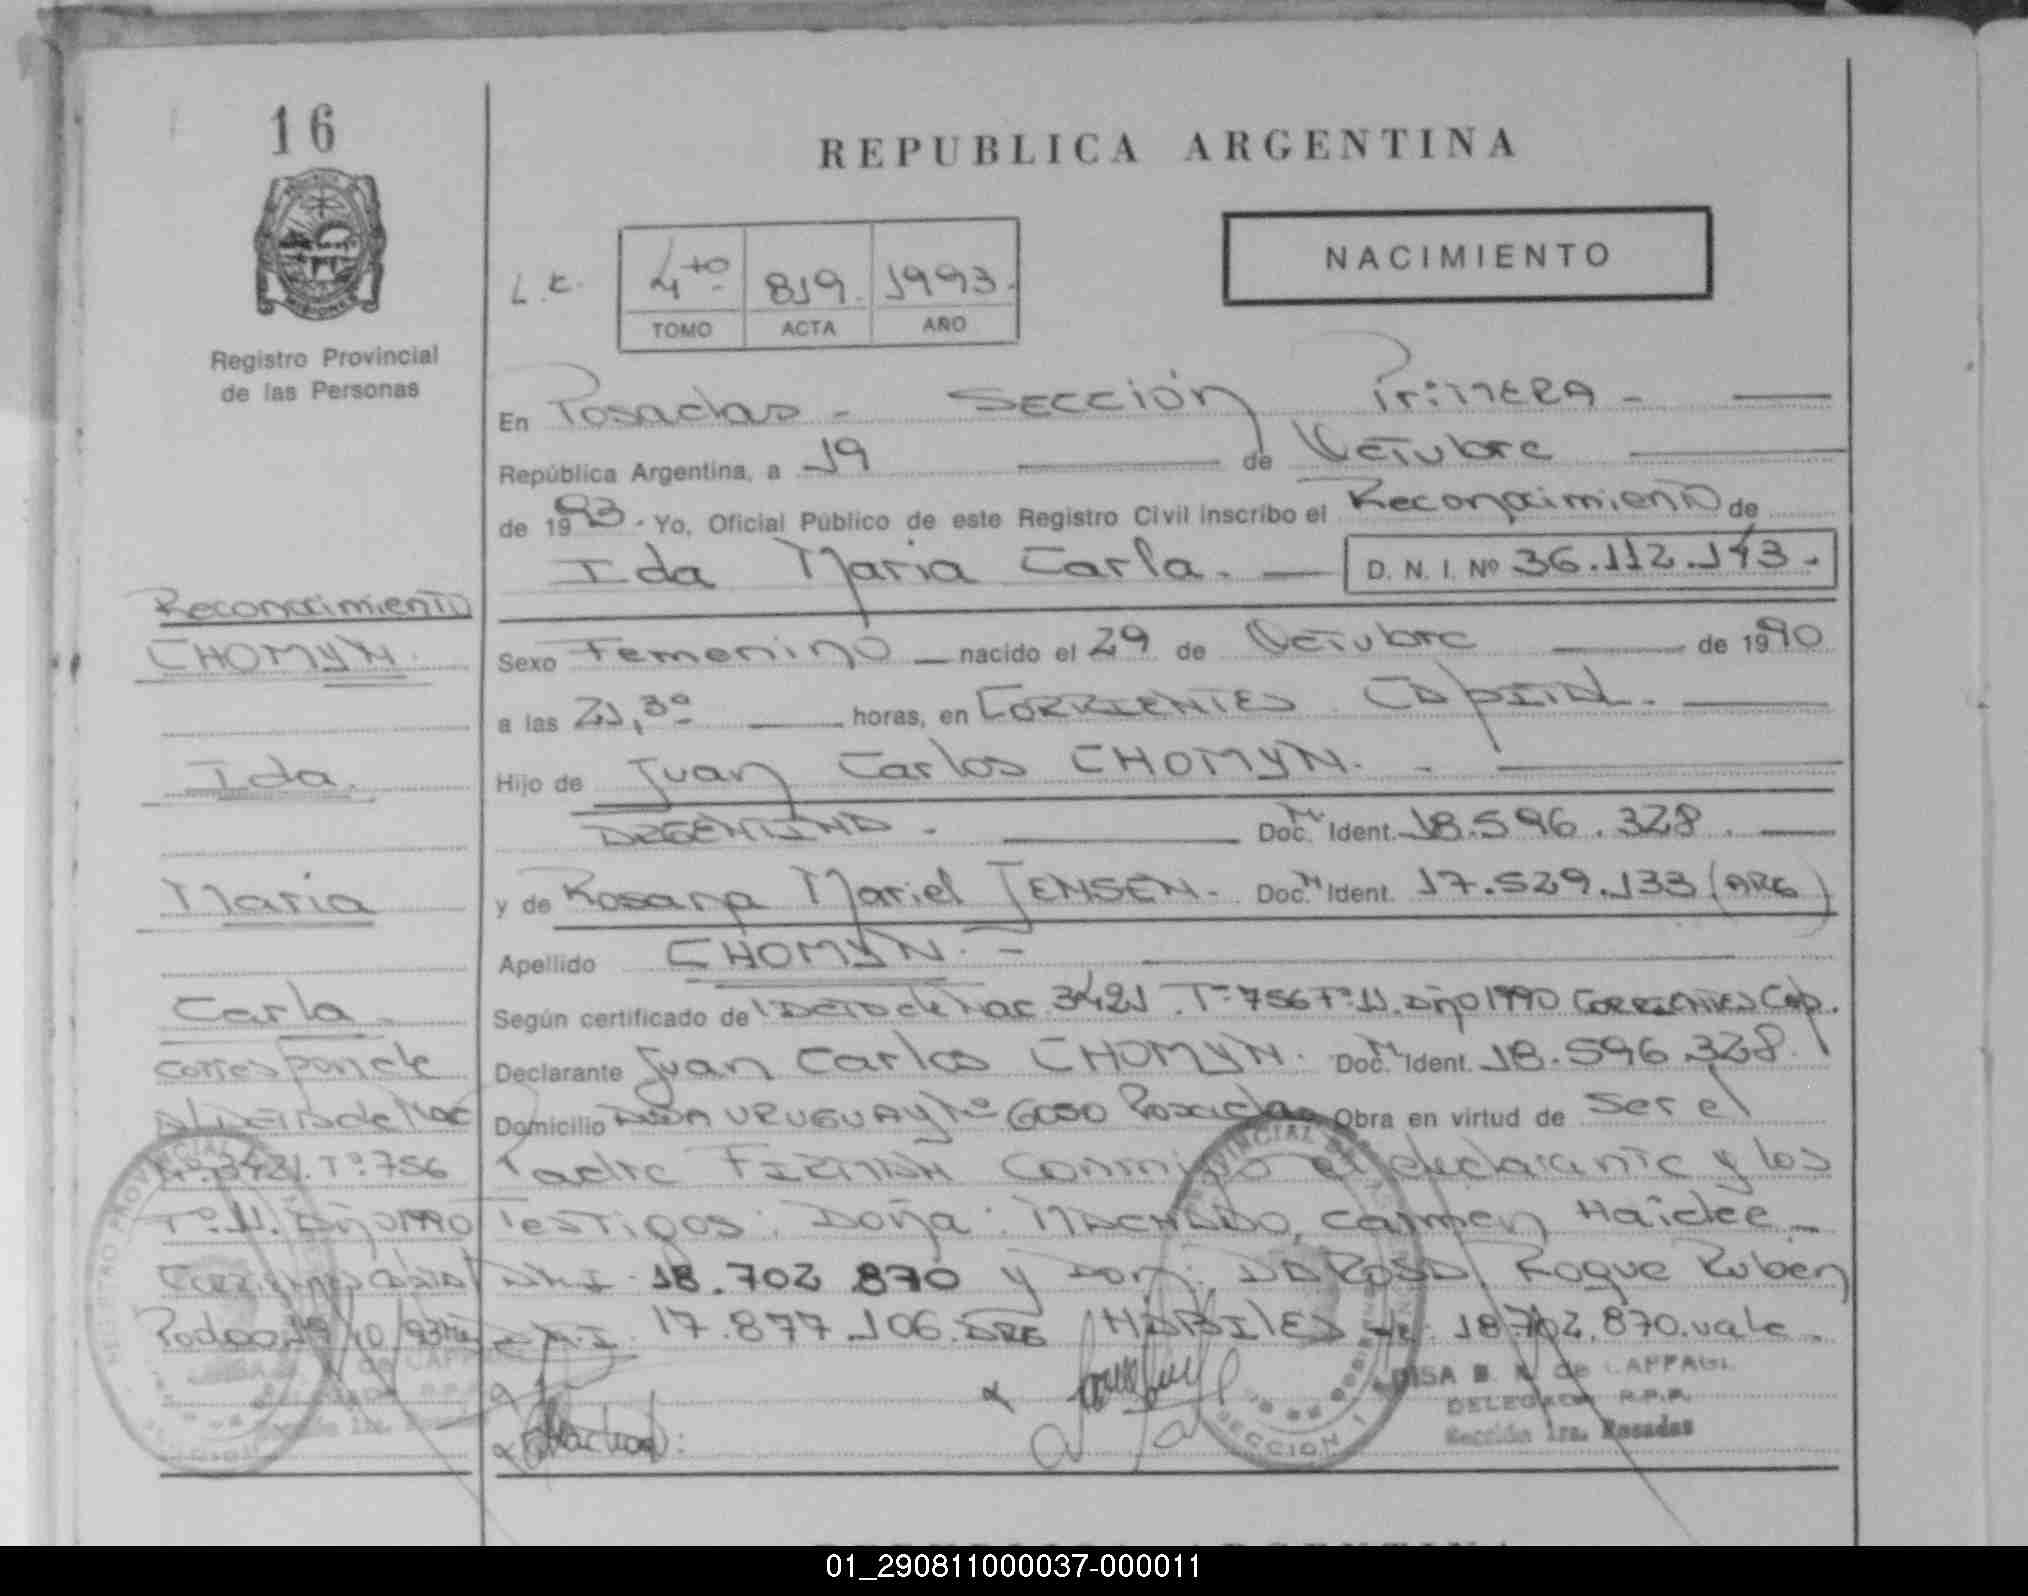 16
REPUBLICA ARGENTINA
NACIMIENTO
4to 819. 1993.
TOMO ACTA AÑO
Registro Provincial
de las Personas
En Posadas - SECCIÓN PriMERA -
República Argentina, a 19 de Octubre
de 1993. Yo, Oficial Público de este Registro Civil inscribo el Reconocimiento de
Ida Maria Carla. D. N. I. Nº 36.112.143.
Reconocimiento
CHOMYN.
Ida.
Maria
Carla
corresponde
al Acta de Nac
Nº 3421. Tº 756
Tº 11. Año 1990
Sexo Femenino nacido el 29 de Octubre de 1990
a las 21,30 horas, en CORRIENTES CAPITAL.
Hijo de Juan Carlos CHOMYN.
ARGENTINO. Doc. M. Ident. 18.596.328.
y de Rosana Mariel JENSEN. Doc. M. Ident. 17.529.133 (ARG)
Apellido CHOMYN.
Según certificado de Acta de Nac 3421. Tº 756 Tº 11. Año 1990 CORRIENTES Cap.
Declarante Juan Carlos CHOMYN. Doc. M. Ident. 18.596.328.
Domicilio AVDA URUGUAY Nº 6050 Posadas Obra en virtud de ser el
Padre FIRMAN conmigo el declarante y los
Testigos: Doña: MACHADO, Carmen Haidée
DNI. 18.702.870 y Don: DA ROSA, Roque Rubén
D.N.I. 17.877.106. ARG HABILES 18.702.870. vale.
B. N. de CAPPAGLI
DELEGADA R.P.P.
Sección 1ra. Posadas
01_290811000037-000011